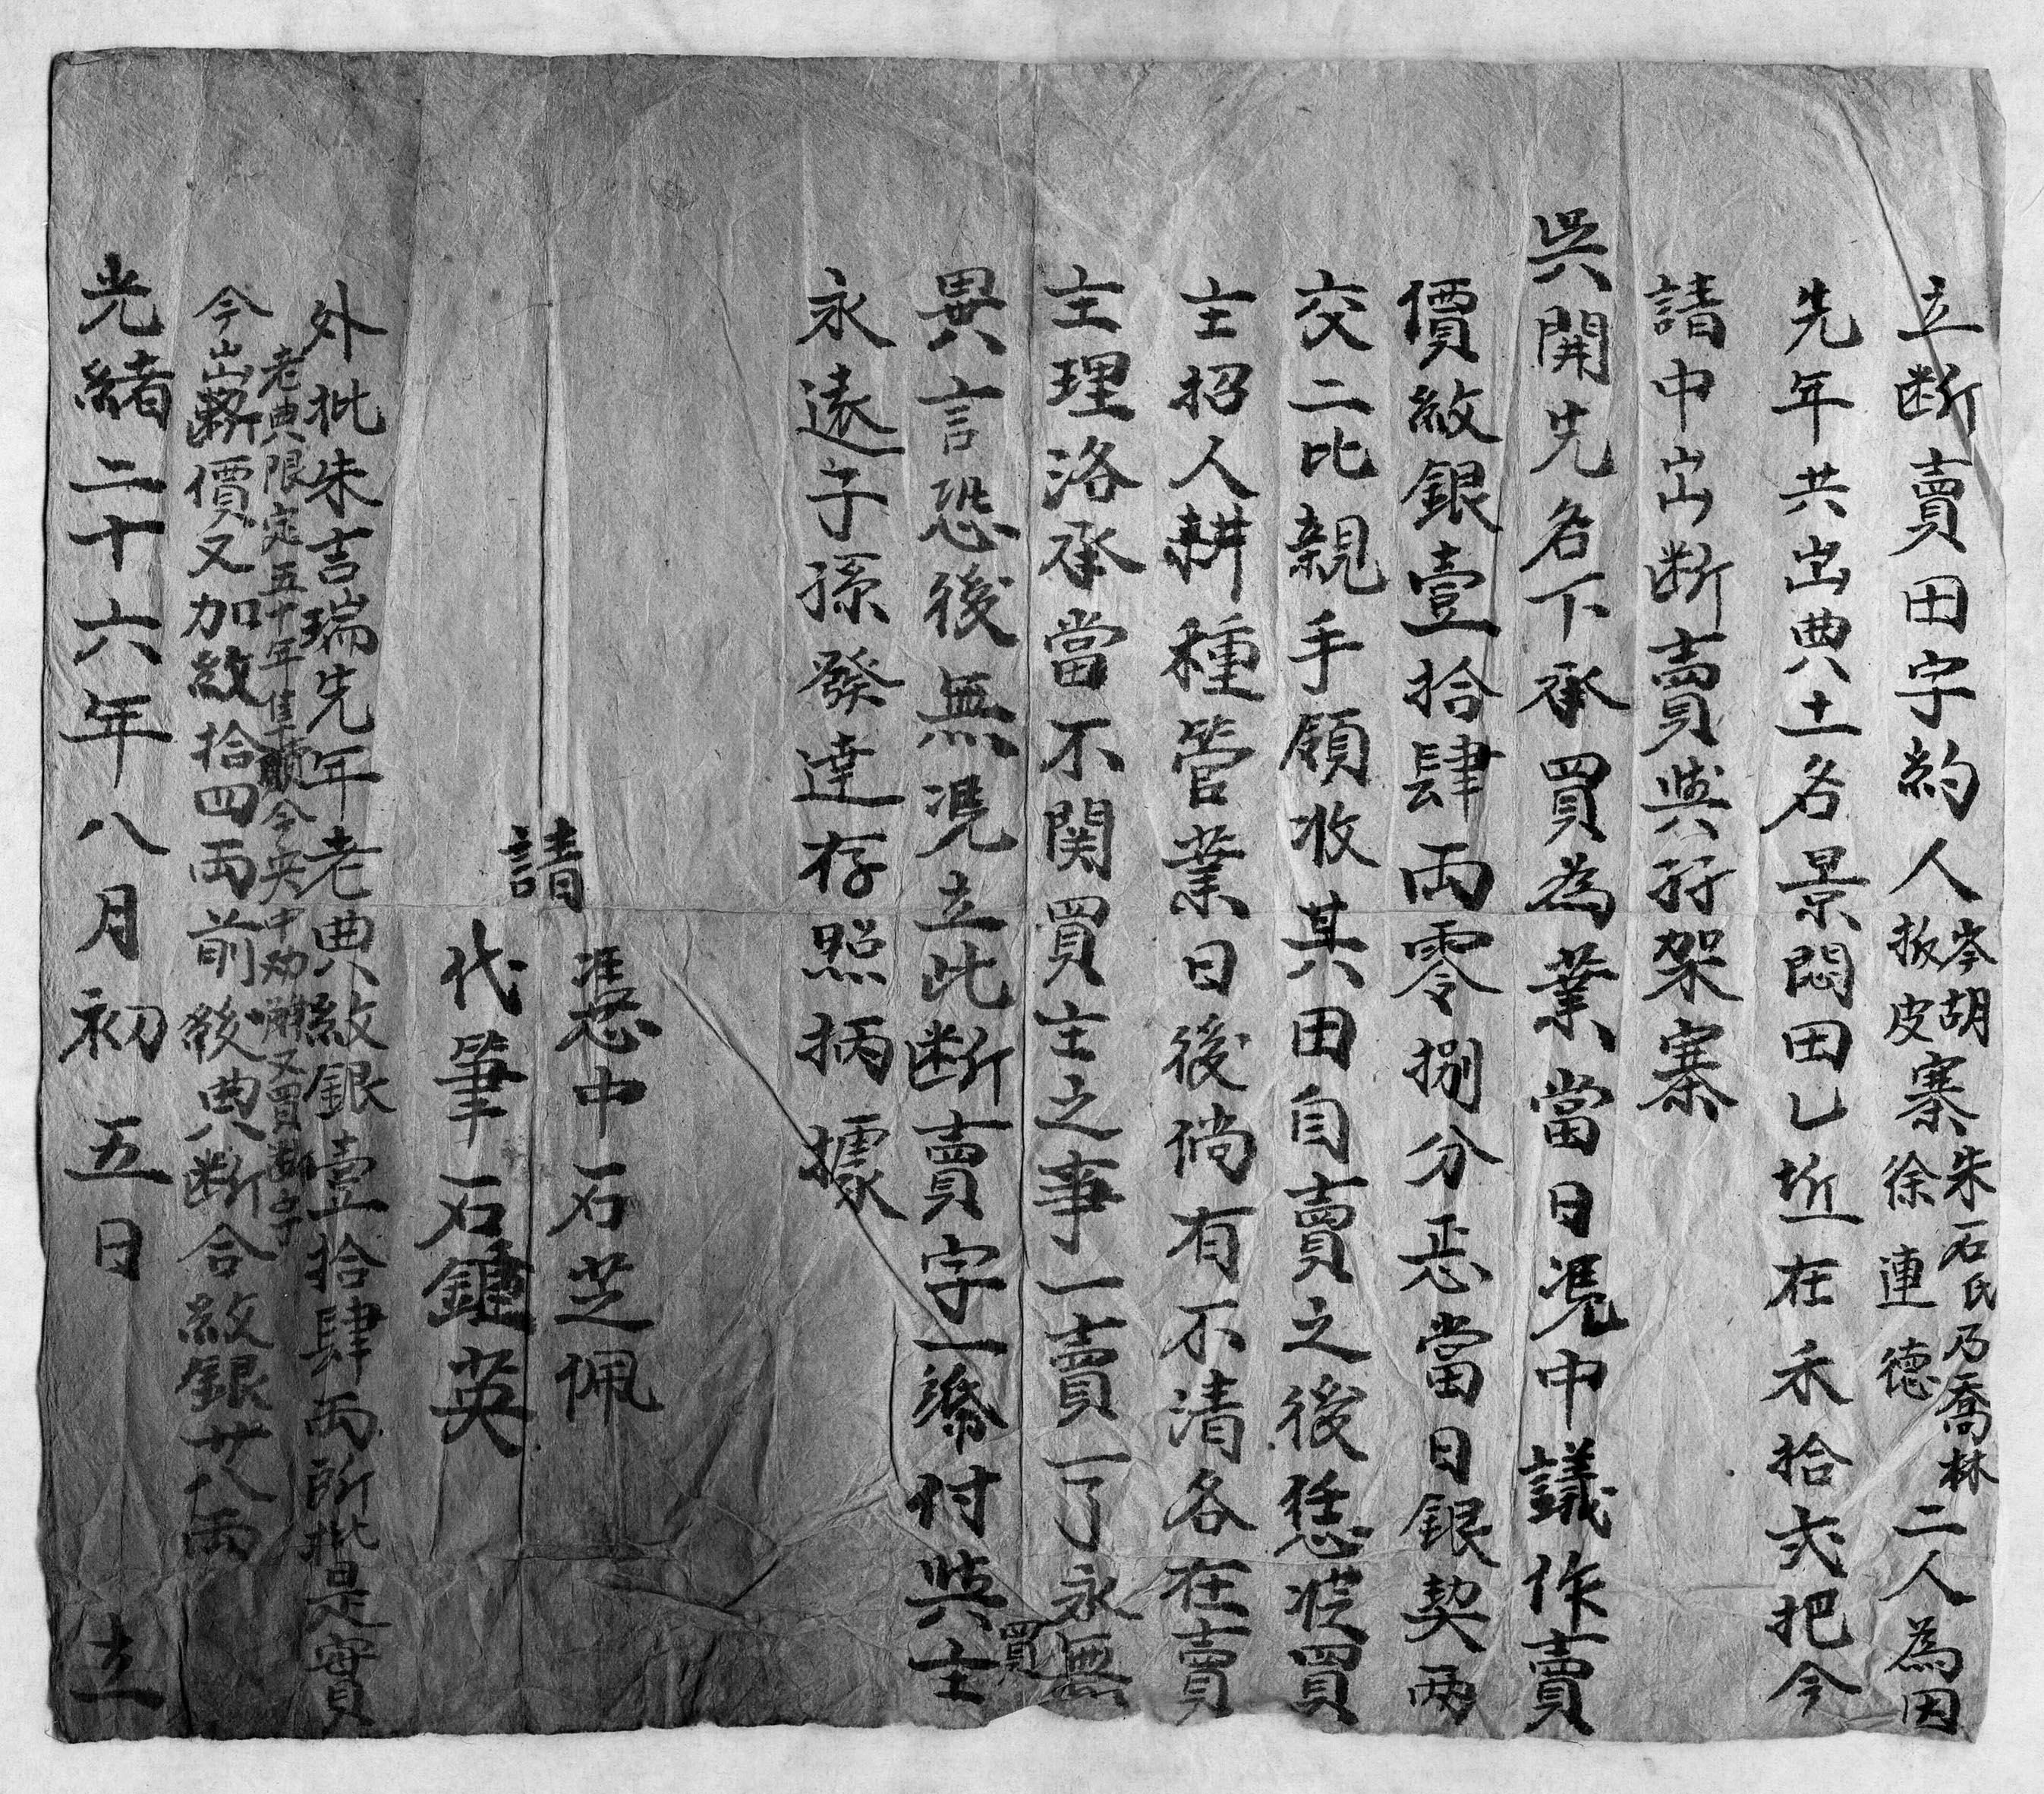 立断賣田字約人岑胡扳皮寨朱石氏乃喬林徐連德二人為因
先年共出典土名景悶田乚坵在禾拾弍把今
請中出断賣與孖架寨
吳開先名下承買為業當日凴中議作賣
價紋銀壹拾肆両零捌分正當日銀契両
交二比親手領收其田自賣之後恁從買
主招人耕種管業日後倘有不清各在賣
主理洛承當不関買主之事一賣一了永無
異言恐後無凴立此断賣字一紙付與買主
永遠子孫發達存照柄據
請
憑中石芝佩
代筆石鍾英
外批朱吉瑞先年老典紋銀壹拾肆両所批是實
老典限定五十年隼贖今央中劝又買断字
今出断價又加紋拾四両前後典断合紋銀廿八両
光緒二十六年八月初五日 立